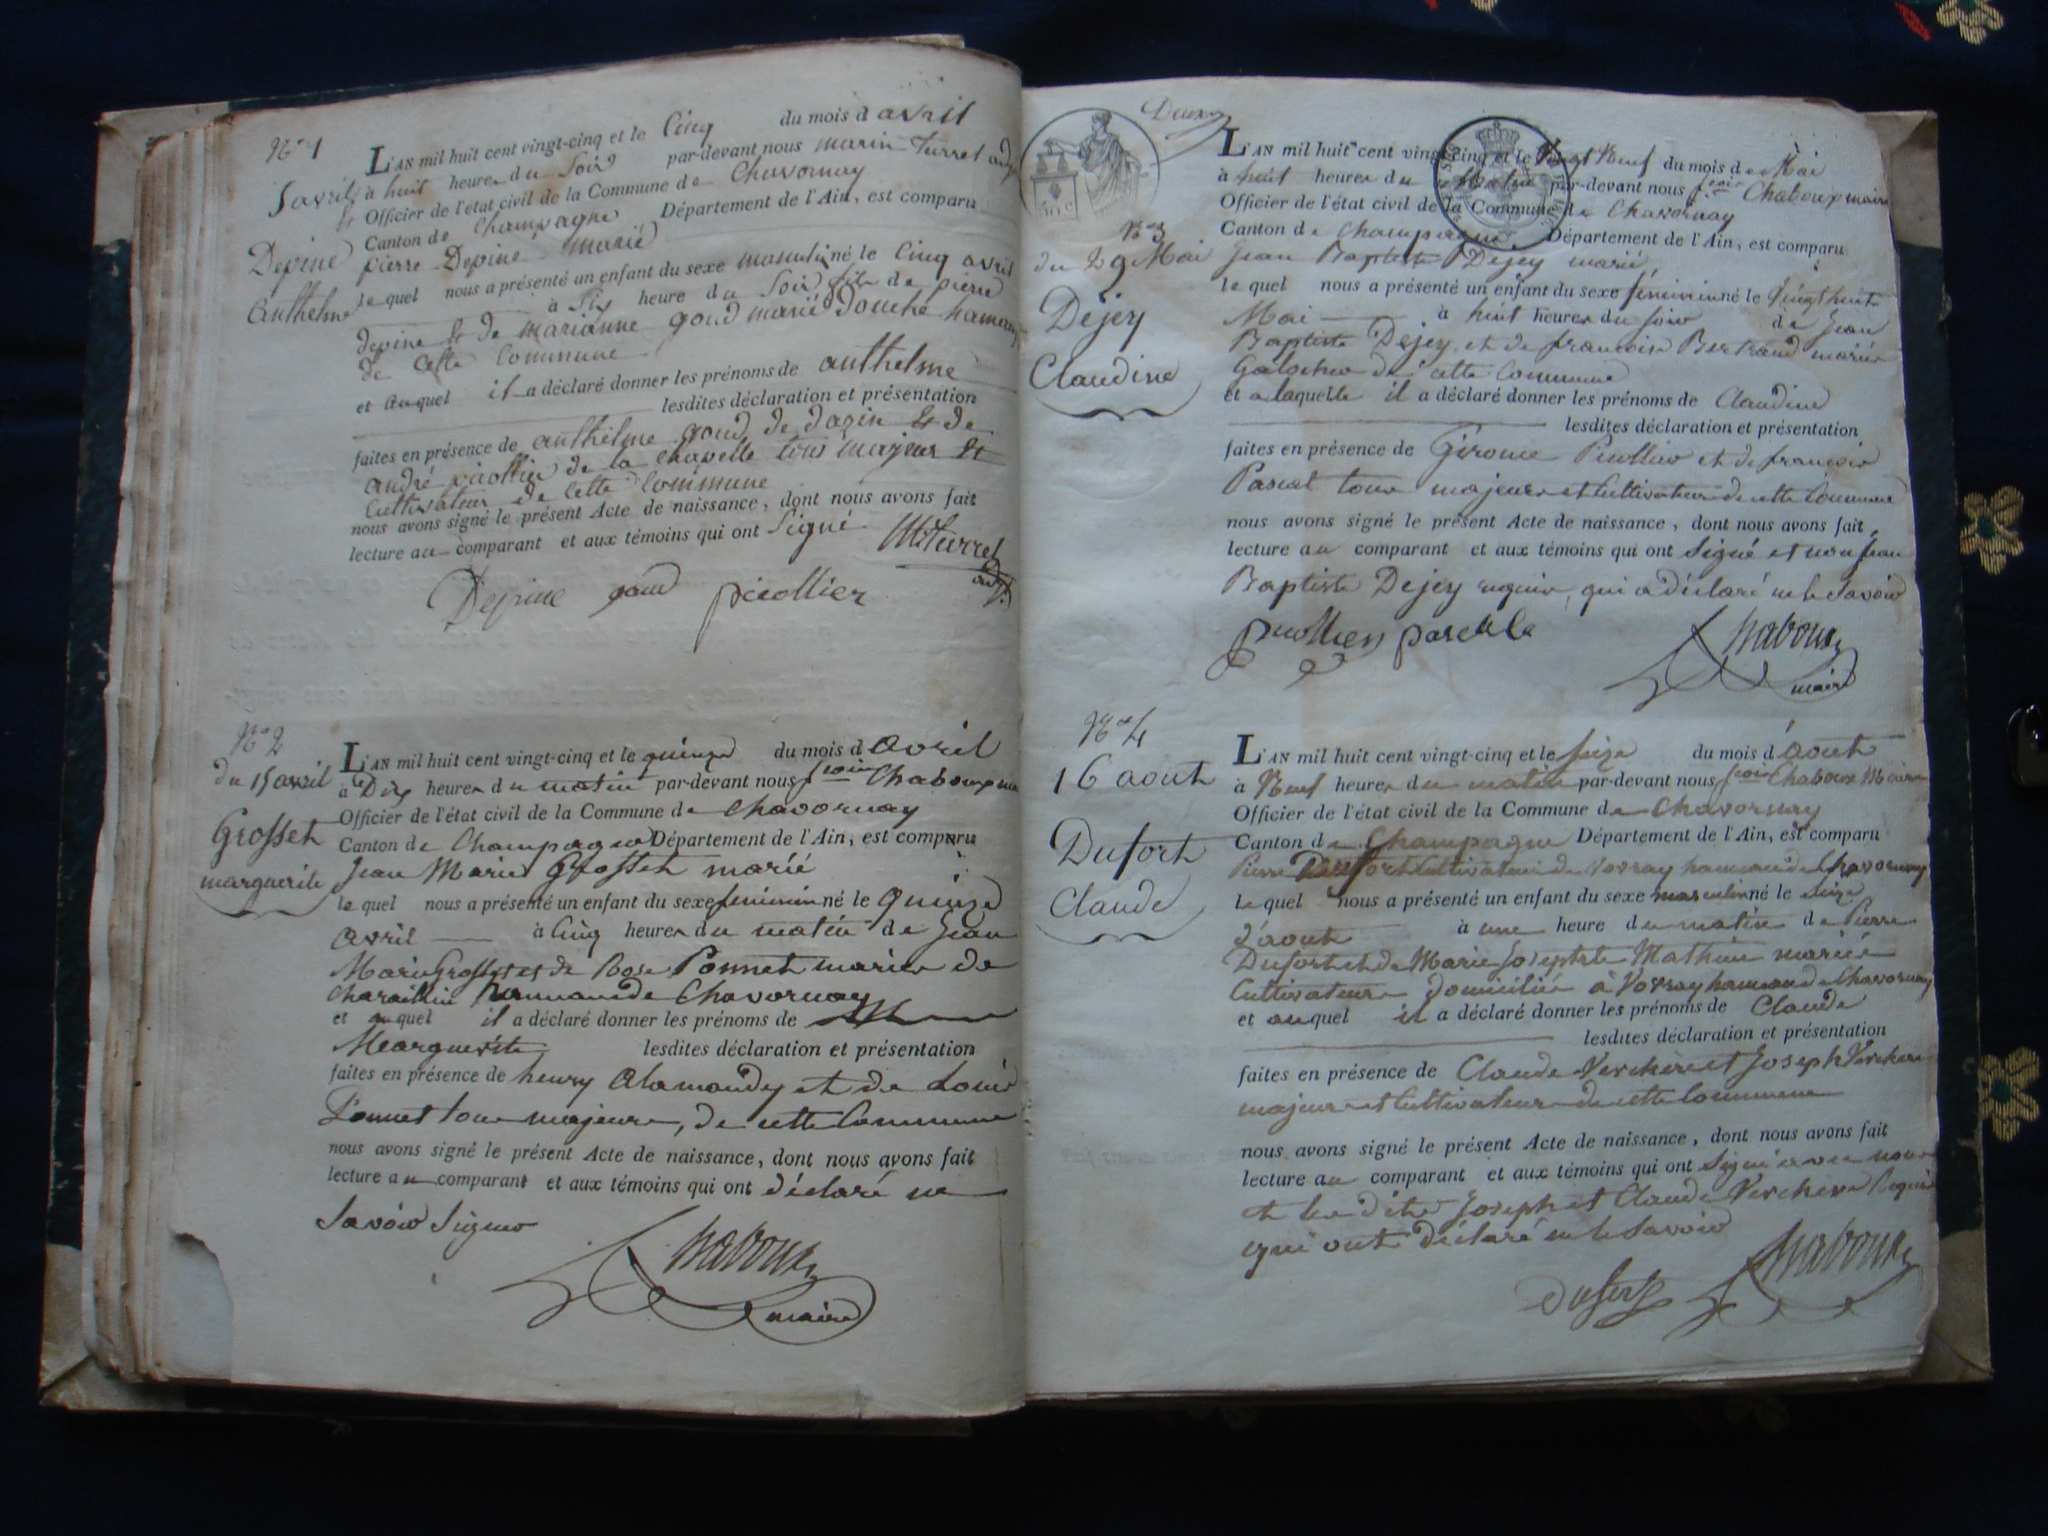 N° 1
5 avril
Depine
Anthelme
L'AN mil huit cent vingt-cinq et le Cinq du mois d avril
à huit heures du Soir par-devant nous marin Turrel adjt
Officier de l'état civil de la Commune de Chavornay
Canton de Champagne Département de l'Ain, est comparu
pierre Depine marié
lequel nous a présenté un enfant du sexe masculin né le Cinq avril
à Six heure du Soir fils de pierre
depine & de marianne goud marié douche hameau
de cette Commune
et auquel il a déclaré donner les prénoms de anthelme
lesdites déclaration et présentation
faites en présence de anthelme goud de dazin & de
andré picollier de la chapelle tous majeur &
Cultivateur de cette Commune
nous avons signé le présent Acte de naissance, dont nous avons fait
lecture au comparant et aux témoins qui ont Signé
MTurrel
adjt
Depine goud picollier
N° 2
du 15 avril
Grosset
marguerite
L'AN mil huit cent vingt-cinq et le quinze du mois d avril
à Dix heures du matin par-devant nous f.cois Chaboux ma
Officier de l'état civil de la Commune de Chavornay
Canton de Champagne Département de l'Ain, est comparu
Jean Marie Grosset marié
lequel nous a présenté un enfant du sexe féminin né le Quinze
avril à Cinq heures du matin de Jean
Marie Grosset et de Rose Ponnet mariés de
hameau de Chavornay
et auquel il a déclaré donner les prénoms de
Marguerite lesdites déclaration et présentation
faites en présence de henry Alamandy et de Louis
Ponnet tous majeurs, de cette Commune
nous avons signé le présent Acte de naissance, dont nous avons fait
lecture au comparant et aux témoins qui ont déclaré ne
Savoir Signer
Chaboux
maire
Deux
N° 3
du 29 Mai
Dejey
Claudine
L'AN mil huit cent vingt-cinq et le Vingt Neuf du mois de Mai
à huit heures du matin par-devant nous f.cois Chaboux maire
Officier de l'état civil de la Commune de Chavornay
Canton de Champagne Département de l'Ain, est comparu
Jean Baptiste Dejey marié
lequel nous a présenté un enfant du sexe féminin né le Vingt huit
Mai à huit heures du soir de Jean
Baptiste Dejey et de francoise Bertrand mariés
de cette Commune
et a laquelle il a déclaré donner les prénoms de Claudine
lesdites déclaration et présentation
faites en présence de Girome Picollier et de francois
Pascal tous majeurs et Cultivateurs de cette Commune
nous avons signé le présent Acte de naissance, dont nous avons fait
lecture au comparant et aux témoins qui ont Signé et non Jean
Baptiste Dejey requis, qui a déclaré ne le Savoir
picollier
Chaboux
maire
N° 4
16 aout
Dufort
Claude
L'AN mil huit cent vingt-cinq et le seize du mois d'aout
à Neuf heures du matin par-devant nous f.cois Chaboux Maire
Officier de l'état civil de la Commune de Chavornay
Canton de Champagne Département de l'Ain, est comparu
Pierre Dufort Cultivateur de Vovray hameau de Chavornay
lequel nous a présenté un enfant du sexe masculin né le Seize
d'aout à une heure du matin de Pierre
Dufort et de Marie Josephte Mathieu mariés
Cultivateurs domicilié à Vovray hameau de Chavornay
et auquel il a déclaré donner les prénoms de Claude
lesdites déclaration et présentation
faites en présence de Claude Verchere et Joseph Verchere
majeurs et Cultivateurs de cette Commune
nous avons signé le présent Acte de naissance, dont nous avons fait
lecture au comparant et aux témoins qui ont Signé avec nous
et les dits Joseph et Claude Verchere Requis
qui ont déclaré ne le Savoir
Chaboux
dufort